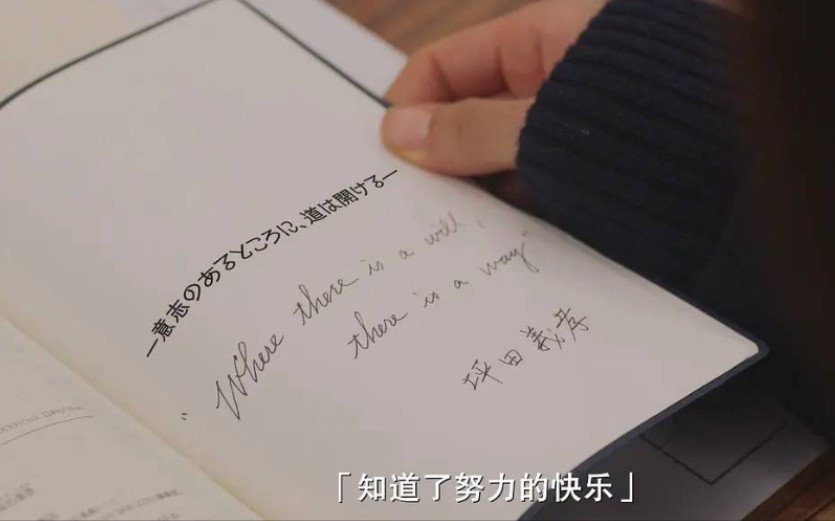 ―意志のあるところに、道は開ける―
"Where there is a will,
there is a way"
坪田義孝
「知道了努力的快乐」